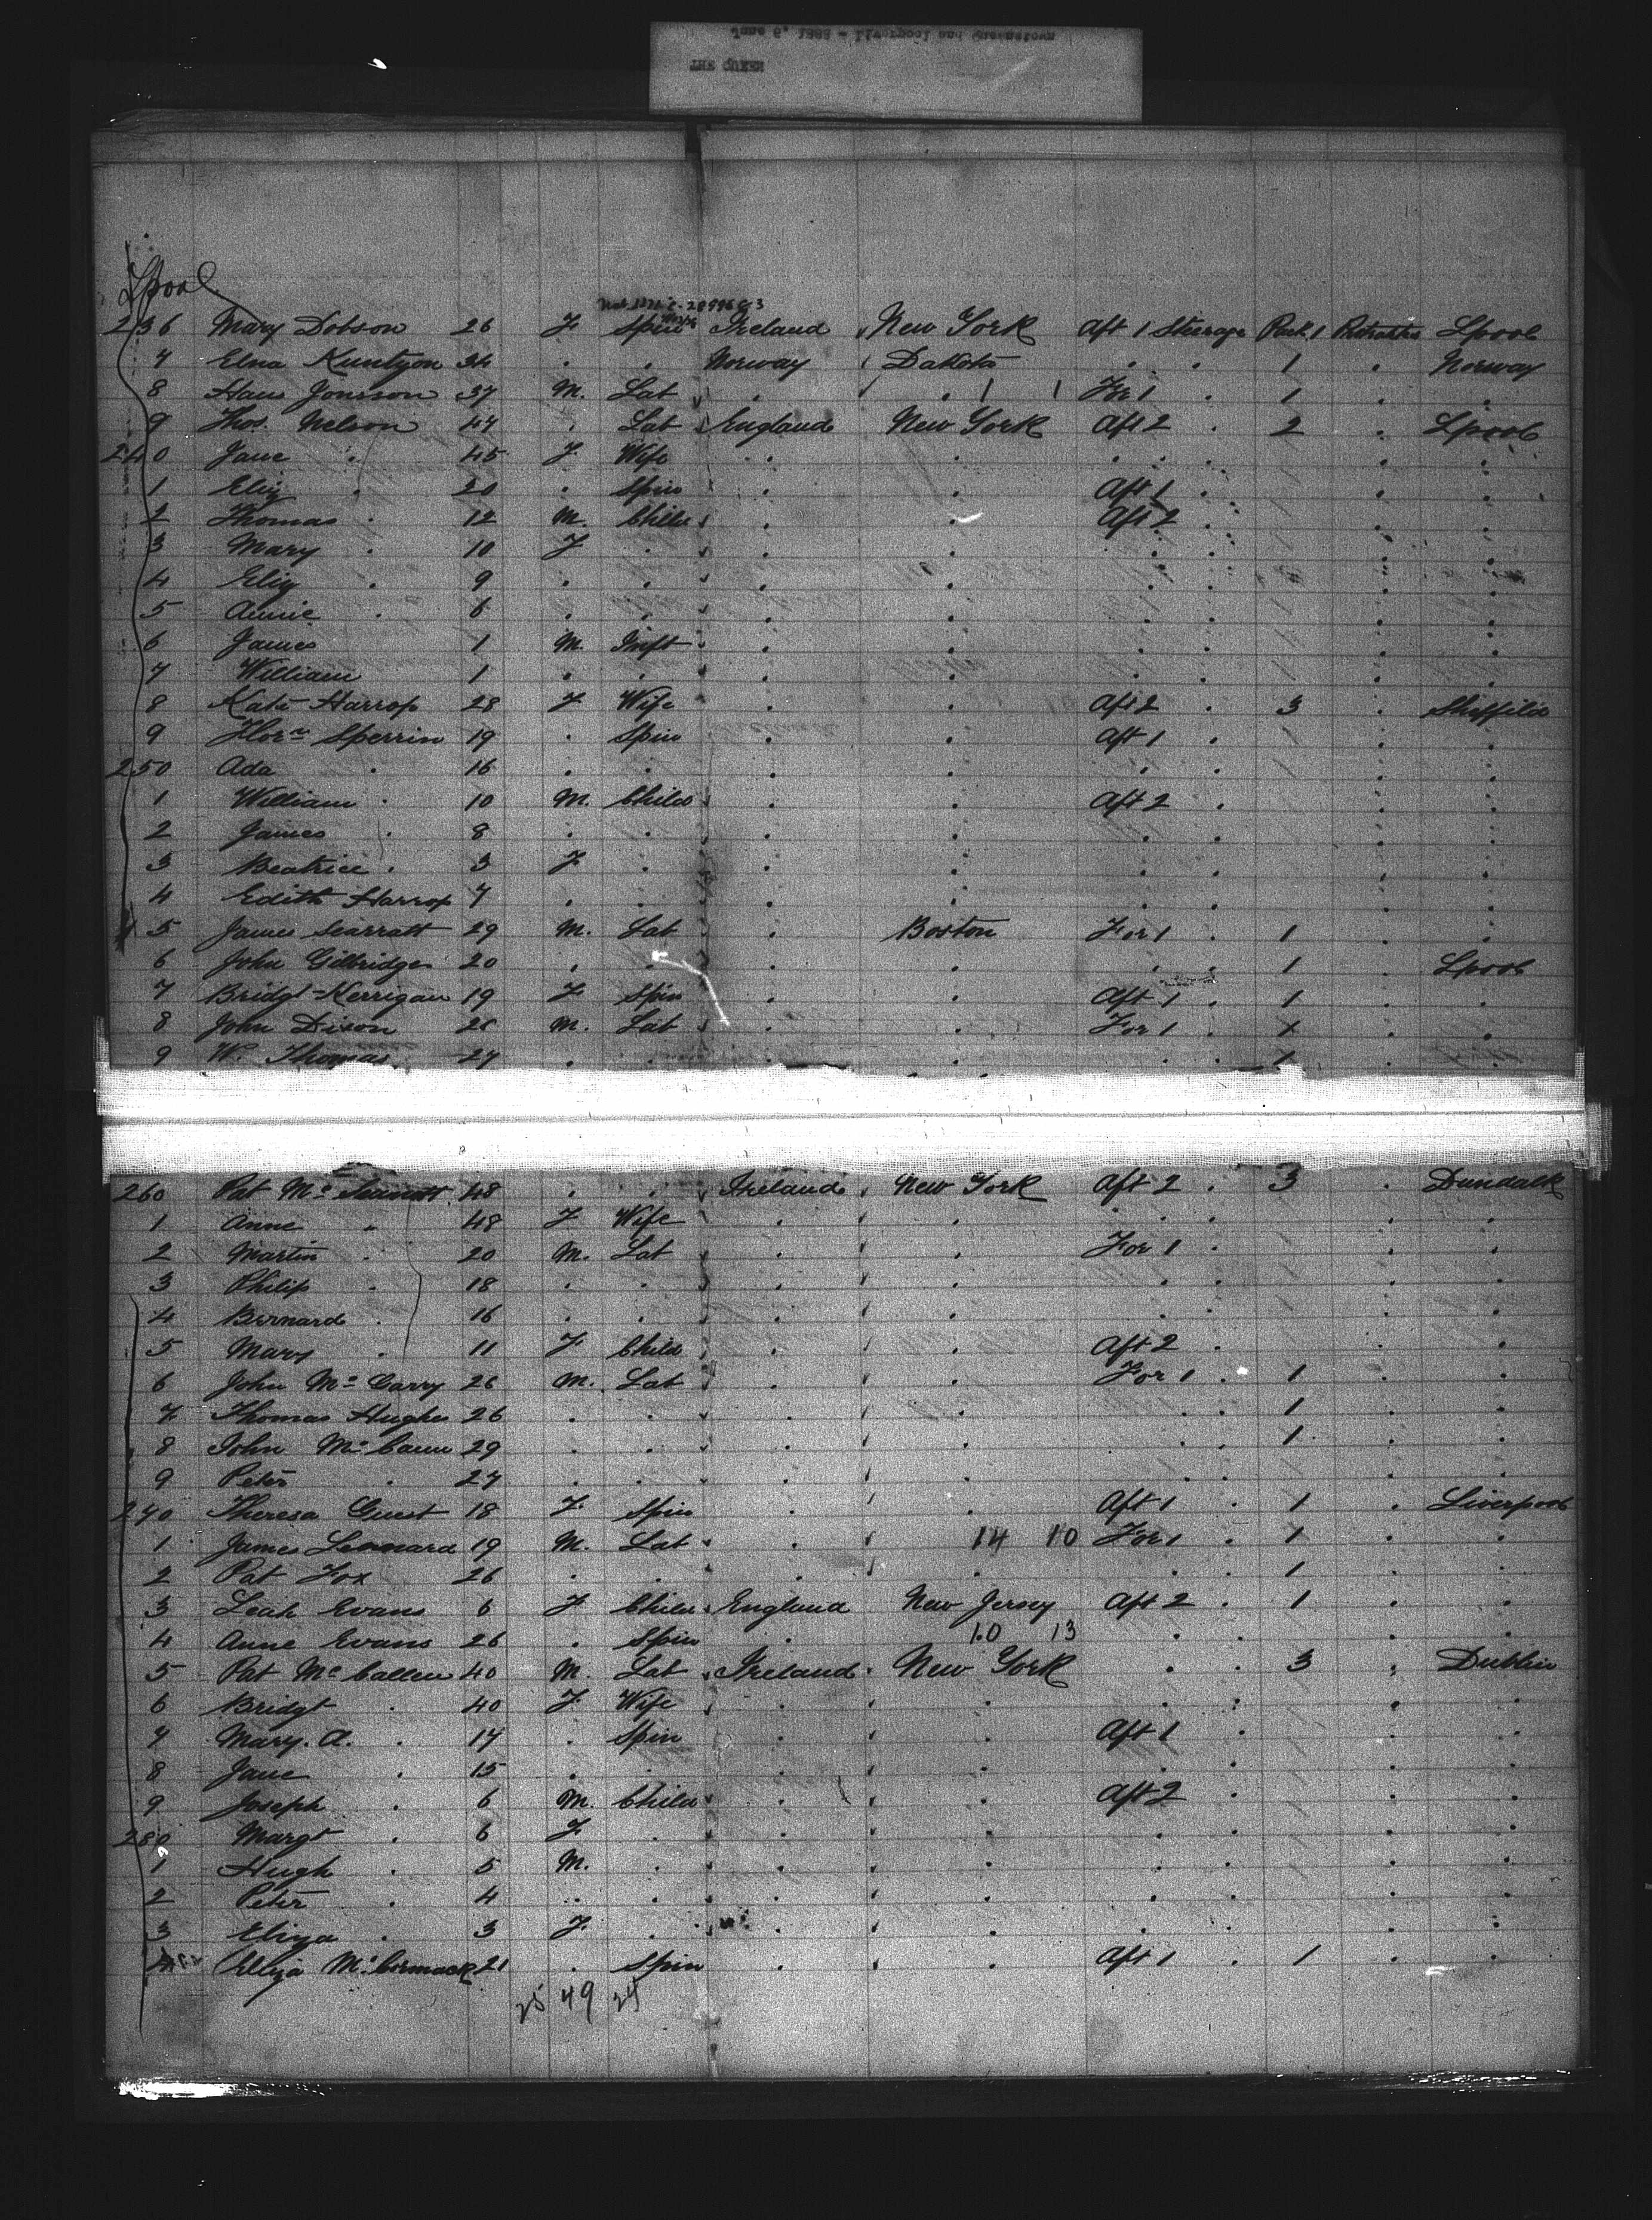 June 6, 1889 - Liverpool and Queenstown
THE QUEEN
Lpool
236 Mary Dobson 26 F Spin Ireland New York Aft 1 Steerage Pack 1 Lpool
7 Elna Kuntzon 34 . . Norway Dakota . . 1 . Norway
8 Hans Jonsson 37 M. Lab . . 1 1 For 1 . 1 . .
9 Thos. Nelson 47 . Lab England New York Aft 2 . 2 . Lpool
240 Jane . 45 F Wife . . . . . .
1 Eliz . 20 . Spin . Aft 1 . . .
2 Thomas . 12 M. Child . . Aft 2 . . .
3 Mary . 10 F . . . . . . .
4 Eliz . 9 . . . . . . . .
5 Annie . 6 . . . . . . . .
6 James 1 M. Inft . . . . . .
7 William 1 . . . . . . . .
8 Kate Harrop 28 F Wife . . Aft 2 . 3 . Sheffield
9 Flor Sperrin 19 . Spin . . Aft 1 . . .
250 Ada . 16 . . . . . . . .
1 William . 10 M. Child . . Aft 2 . . .
2 James . 8 . . . . . . . .
3 Beatrice . 3 F . . . . . . .
4 Edith Harrop 7 . . . . . . . .
5 James Scarratt 29 M. Lab . Boston For 1 . 1 . .
6 John Gilbridge 20 . . . . . . 1 . Lpool
7 Bridgt Kerrigan 19 F Spin . . Aft 1 . 1 . .
8 John Dixon 26 M. Lab . . For 1 . x . .
9 W. Thomas 27 . . . . . . 1 . .
260 Pat Mc 48 . . Ireland New York Aft 2 . 3 . Dundalk
1 Anne " 48 F Wife . . . . . .
2 Martin . 20 M. Lab . . For 1 . . .
3 Philip . 18 . . . . . . . .
4 Bernard . 16 . . . . . . . .
5 Mary . 11 F Child . . Aft 2 . . .
6 John Mc Garry 26 M. Lab . . For 1 . 1 . .
7 Thomas Hughes 26 . . . . . . 1 . .
8 John Mc Cann 29 . . . . . . 1 . .
9 Peter . 27 . . . . . . . .
270 Theresa Guest 18 F Spin . . Aft 1 . 1 . Liverpool
1 James Leonard 19 M. Lab . 14 10 For 1 . 1 . .
2 Pat Fox 26 . . . . . . 1 . .
3 Leah Evans 6 F Child England New Jersey Aft 2 . 1 . .
4 Anne Evans 26 . Spin . 10 13 . . . .
5 Pat Mc Callen 40 M. Lab Ireland New York . . 3 . Dublin
6 Bridgt . 40 F Wife . . . . . .
7 Mary. A. . 17 . Spin . . Aft 1 . . .
8 Jane . 15 . . . . . . . .
9 Joseph . 6 M. Child . . Aft 2 . . .
280 Margt . 6 F . . . . . . .
1 Hugh . 5 M. . . . . . . .
2 Peter . 4 . . . . . . . .
3 Eliza . 3 F. . . . . . . .
4 Eliza Mc Cormack 21 . Spin . . Aft 1 . 1 . .
25 49 24